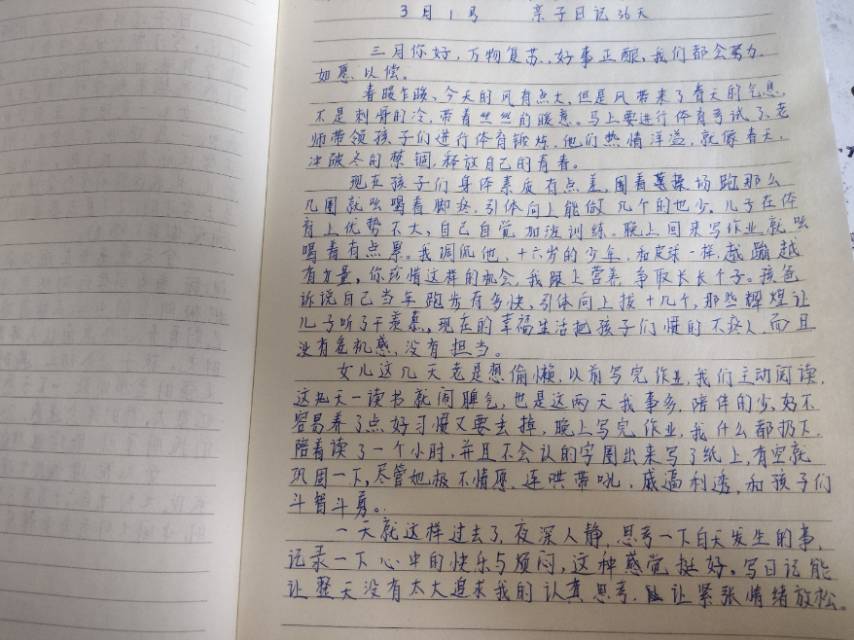 3月1号 亲子日记36天
三月你好,万物复苏,好事正酿,我们都会努力,
如愿以偿。
春暖乍暖、今天的风有点大,但是风带来了春天的气息,
不是刺骨的冷,带着丝丝的暖意。马上要进行体育考试了,老
师带领孩子们进行体育锻炼,他们热情洋溢,就像春天,
冲破冬的禁锢,释放自己的青春。
现在孩子们身体素质有点差,围着操场跑那么
几圈就吆喝着脚疼,引体向上能做几个的也少,儿子在体
育上优势不大,自己自觉加强训练。晚上回来写作业就吆
喝着有点累。我调侃他,十六岁的少年,和皮球一样,越蹦越
有力量,你珍惜这样的机会,我跟上营养,争取长长个子。孩爸
诉说自己当年跑步有多快,引体向上拔十几个,那些辉煌让
儿子听了干羡慕,现在的幸福生活把孩子们惯的不疼人,而且
没有危机感,没有担当。
女儿这几天老是想偷懒,以前写完作业,我们主动阅读,
这把天一读书就闹脾气,也是这两天我事多,陪伴的少,好不
容易养了点好习惯又要丢掉,晚上写完作业,我什么都扔下,
陪着读了一个小时,并且不会认的字圈出来写了纸上,有空就
巩固一下,尽管她极不情愿,连哄带吼,威逼利诱,和孩子们
斗智斗勇。
一天就这样过去了,夜深人静,思考一下白天发生的事,
记录一下心中的快乐与烦闷,这种感觉挺好。写日记能
让整天没有太大追求我的认真思考,让紧张情绪放松。